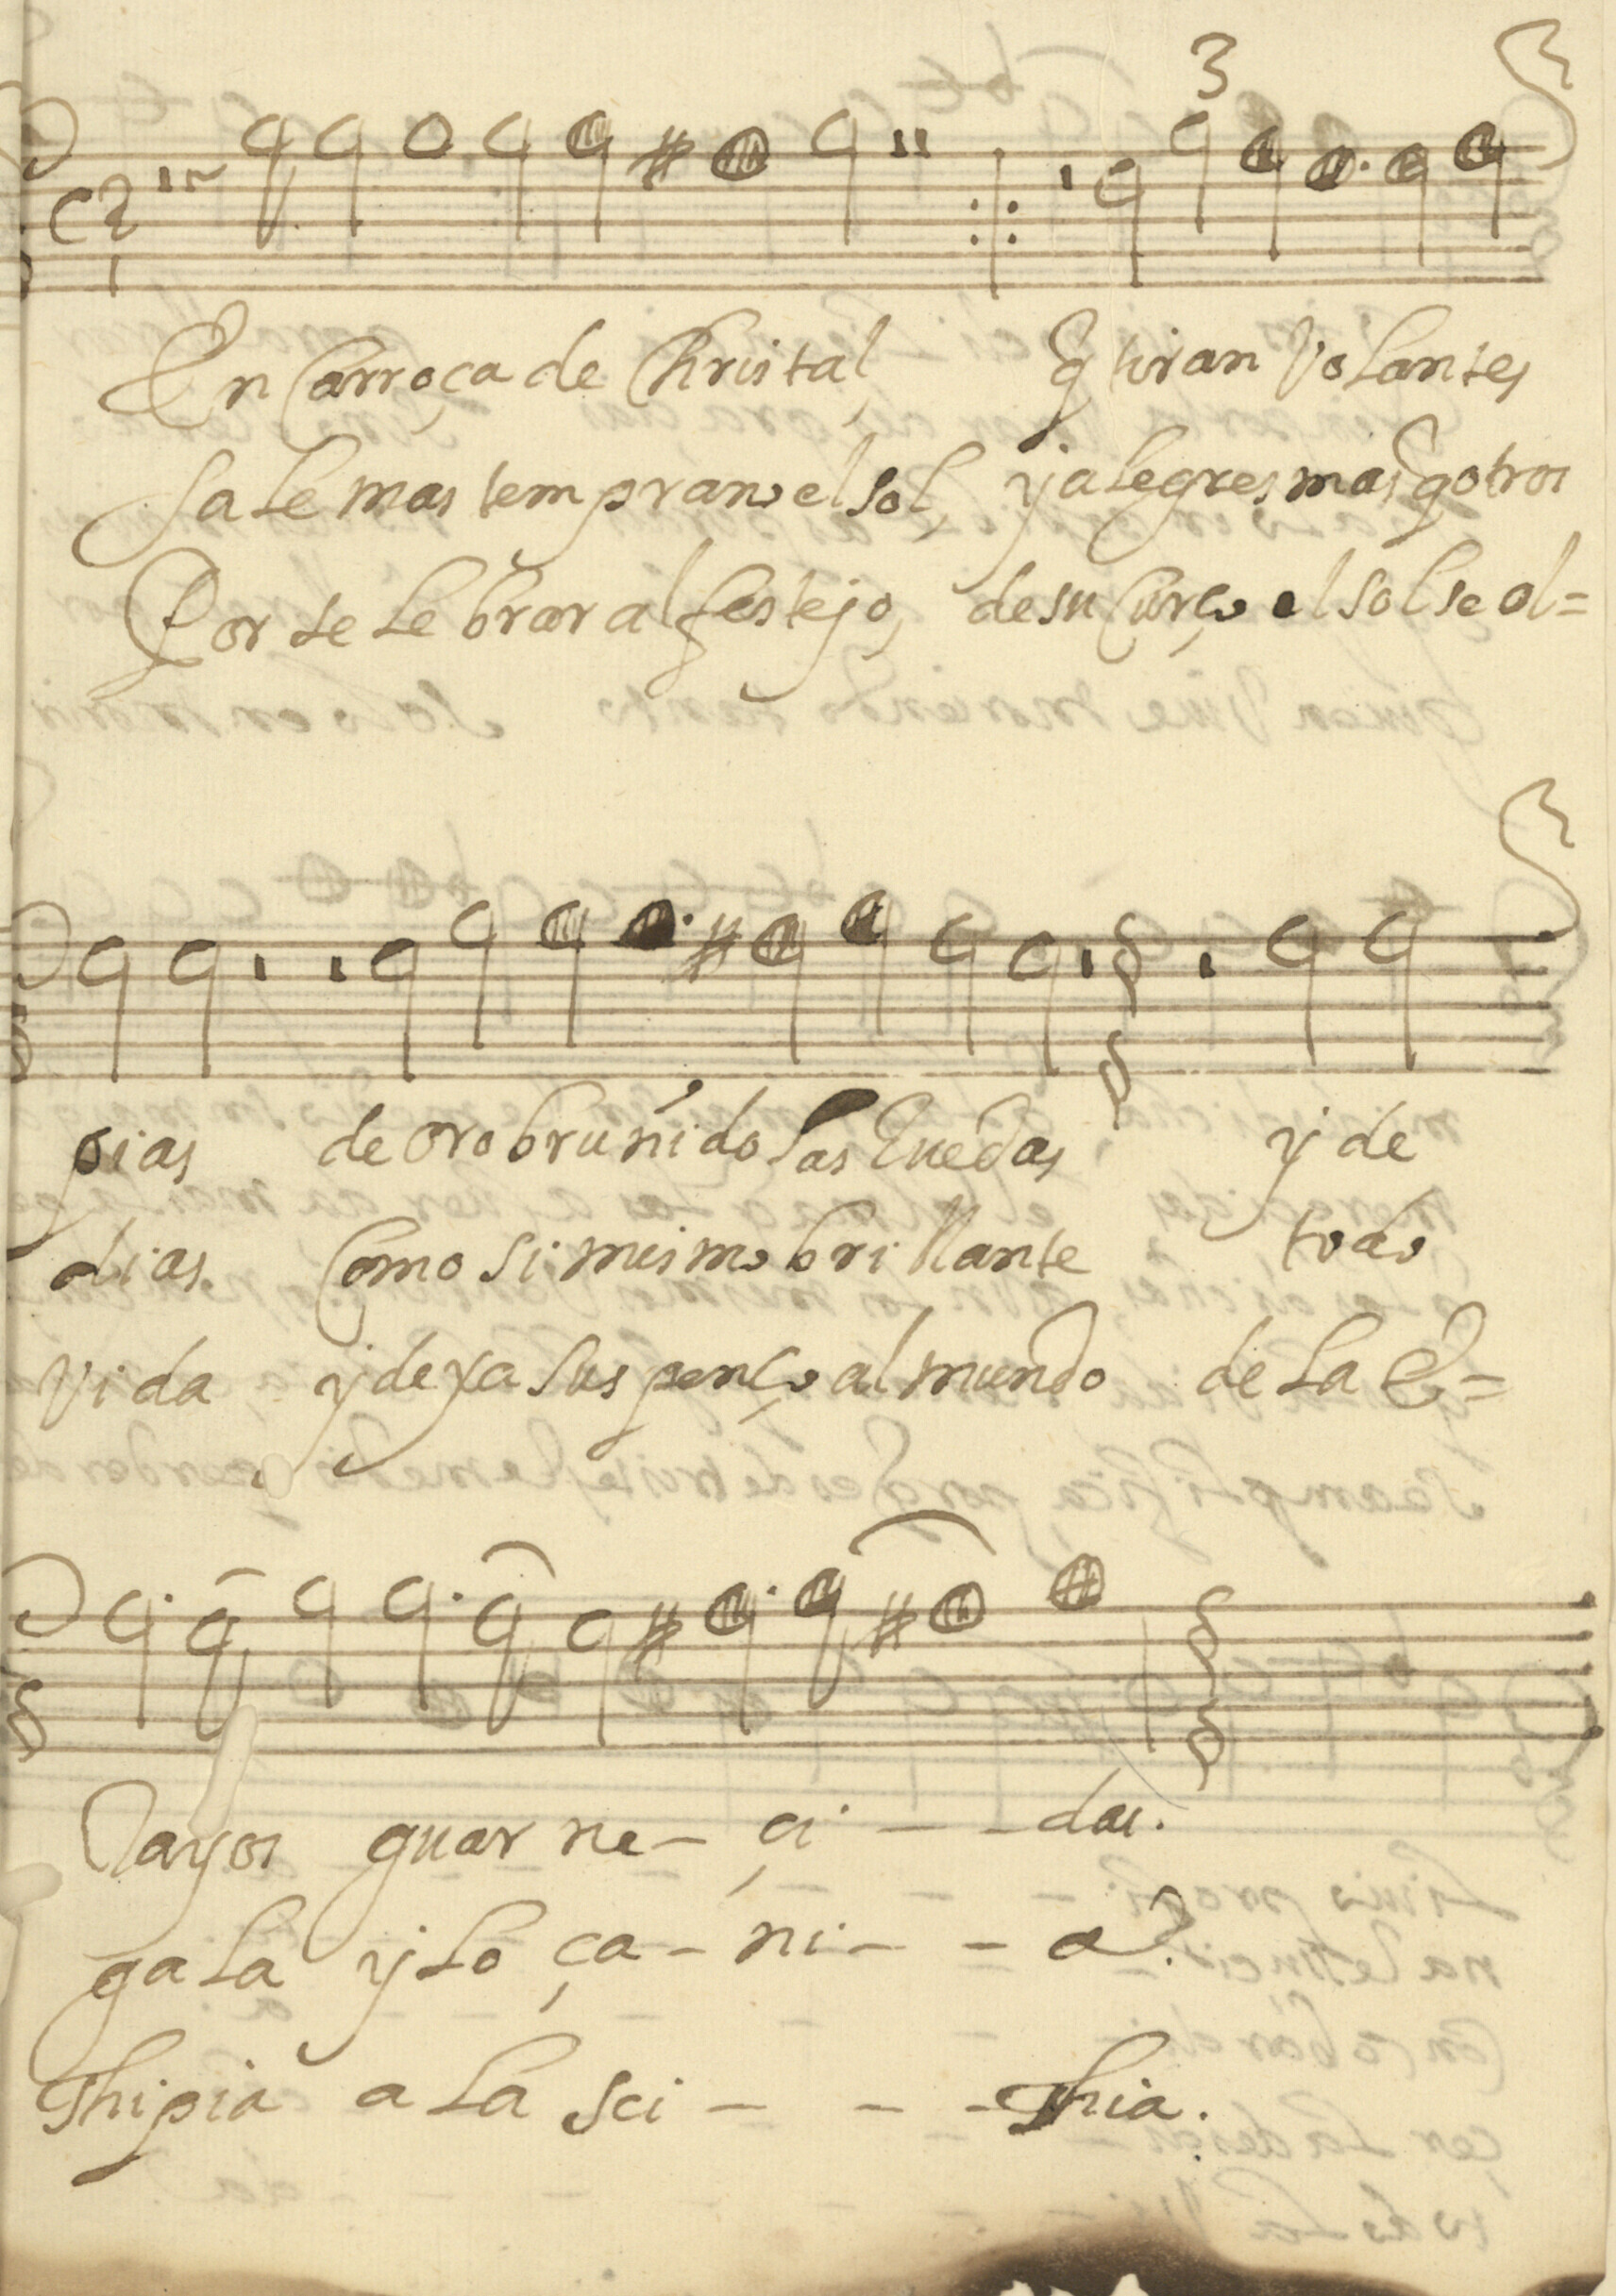 3
En Carroça de Christal, q tiran Volantes
Sale mas temprano el Sol, y alegres mas q otros
Por selebrar al festejo, de su Curço el Sol se ol=
pias de oro bruñido las Ruedas y de
dias Como si mismo brillante todo
vida y dexa suspenço al mundo de la E=
Rayos guar ne- çi - - das.
gala y lo ça - ni - - a?
Thipia a la Sci - - - thia.